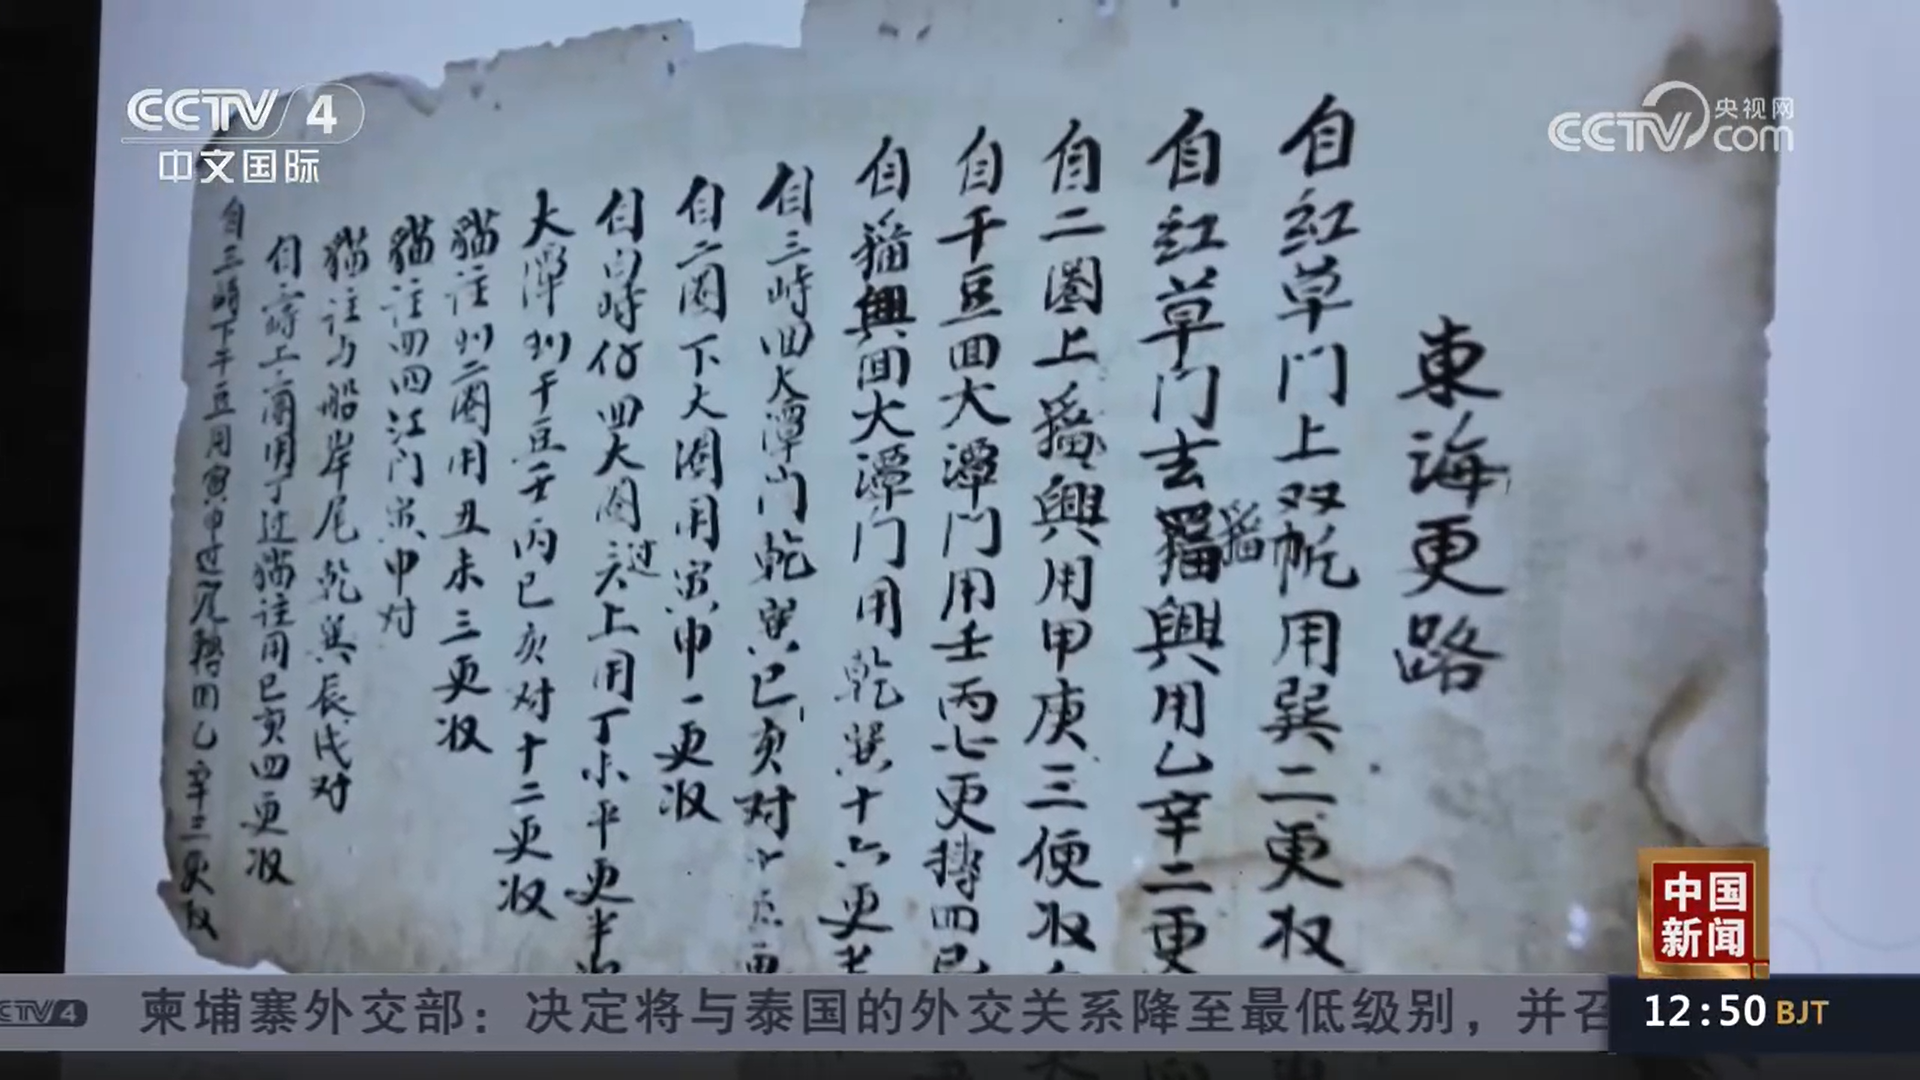 CCTV 4
中文国际
央视网
CCTV com
東海更路
自红草门上双帆用巽二更收
自红草门去猫興用乙辛二更
猫
自二圈上猫興用甲庚三便收
自干豆回大潭门用壬丙七更摶四巳
自猫興回大潭门用乾巽十六更
自三峙回大潭门乾巽巳亥对
自二圈下大圈用寅申一更收
自白峙仔四大圈
过
上用丁未平更半
大潭到干豆壬丙巳亥对十二更收
猫注到二圈用丑未三更收
猫注四四江门寅申对
猫注与船岸尾乾巽辰戌对
自三峙上
用丁过猫注用巳亥四更收
自三峙下干豆用寅申过
尾
四乙辛三更收
中国
新闻
CCTV 4
柬埔寨外交部：决定将与泰国的外交关系降至最低级别，并召
12:50 BJT